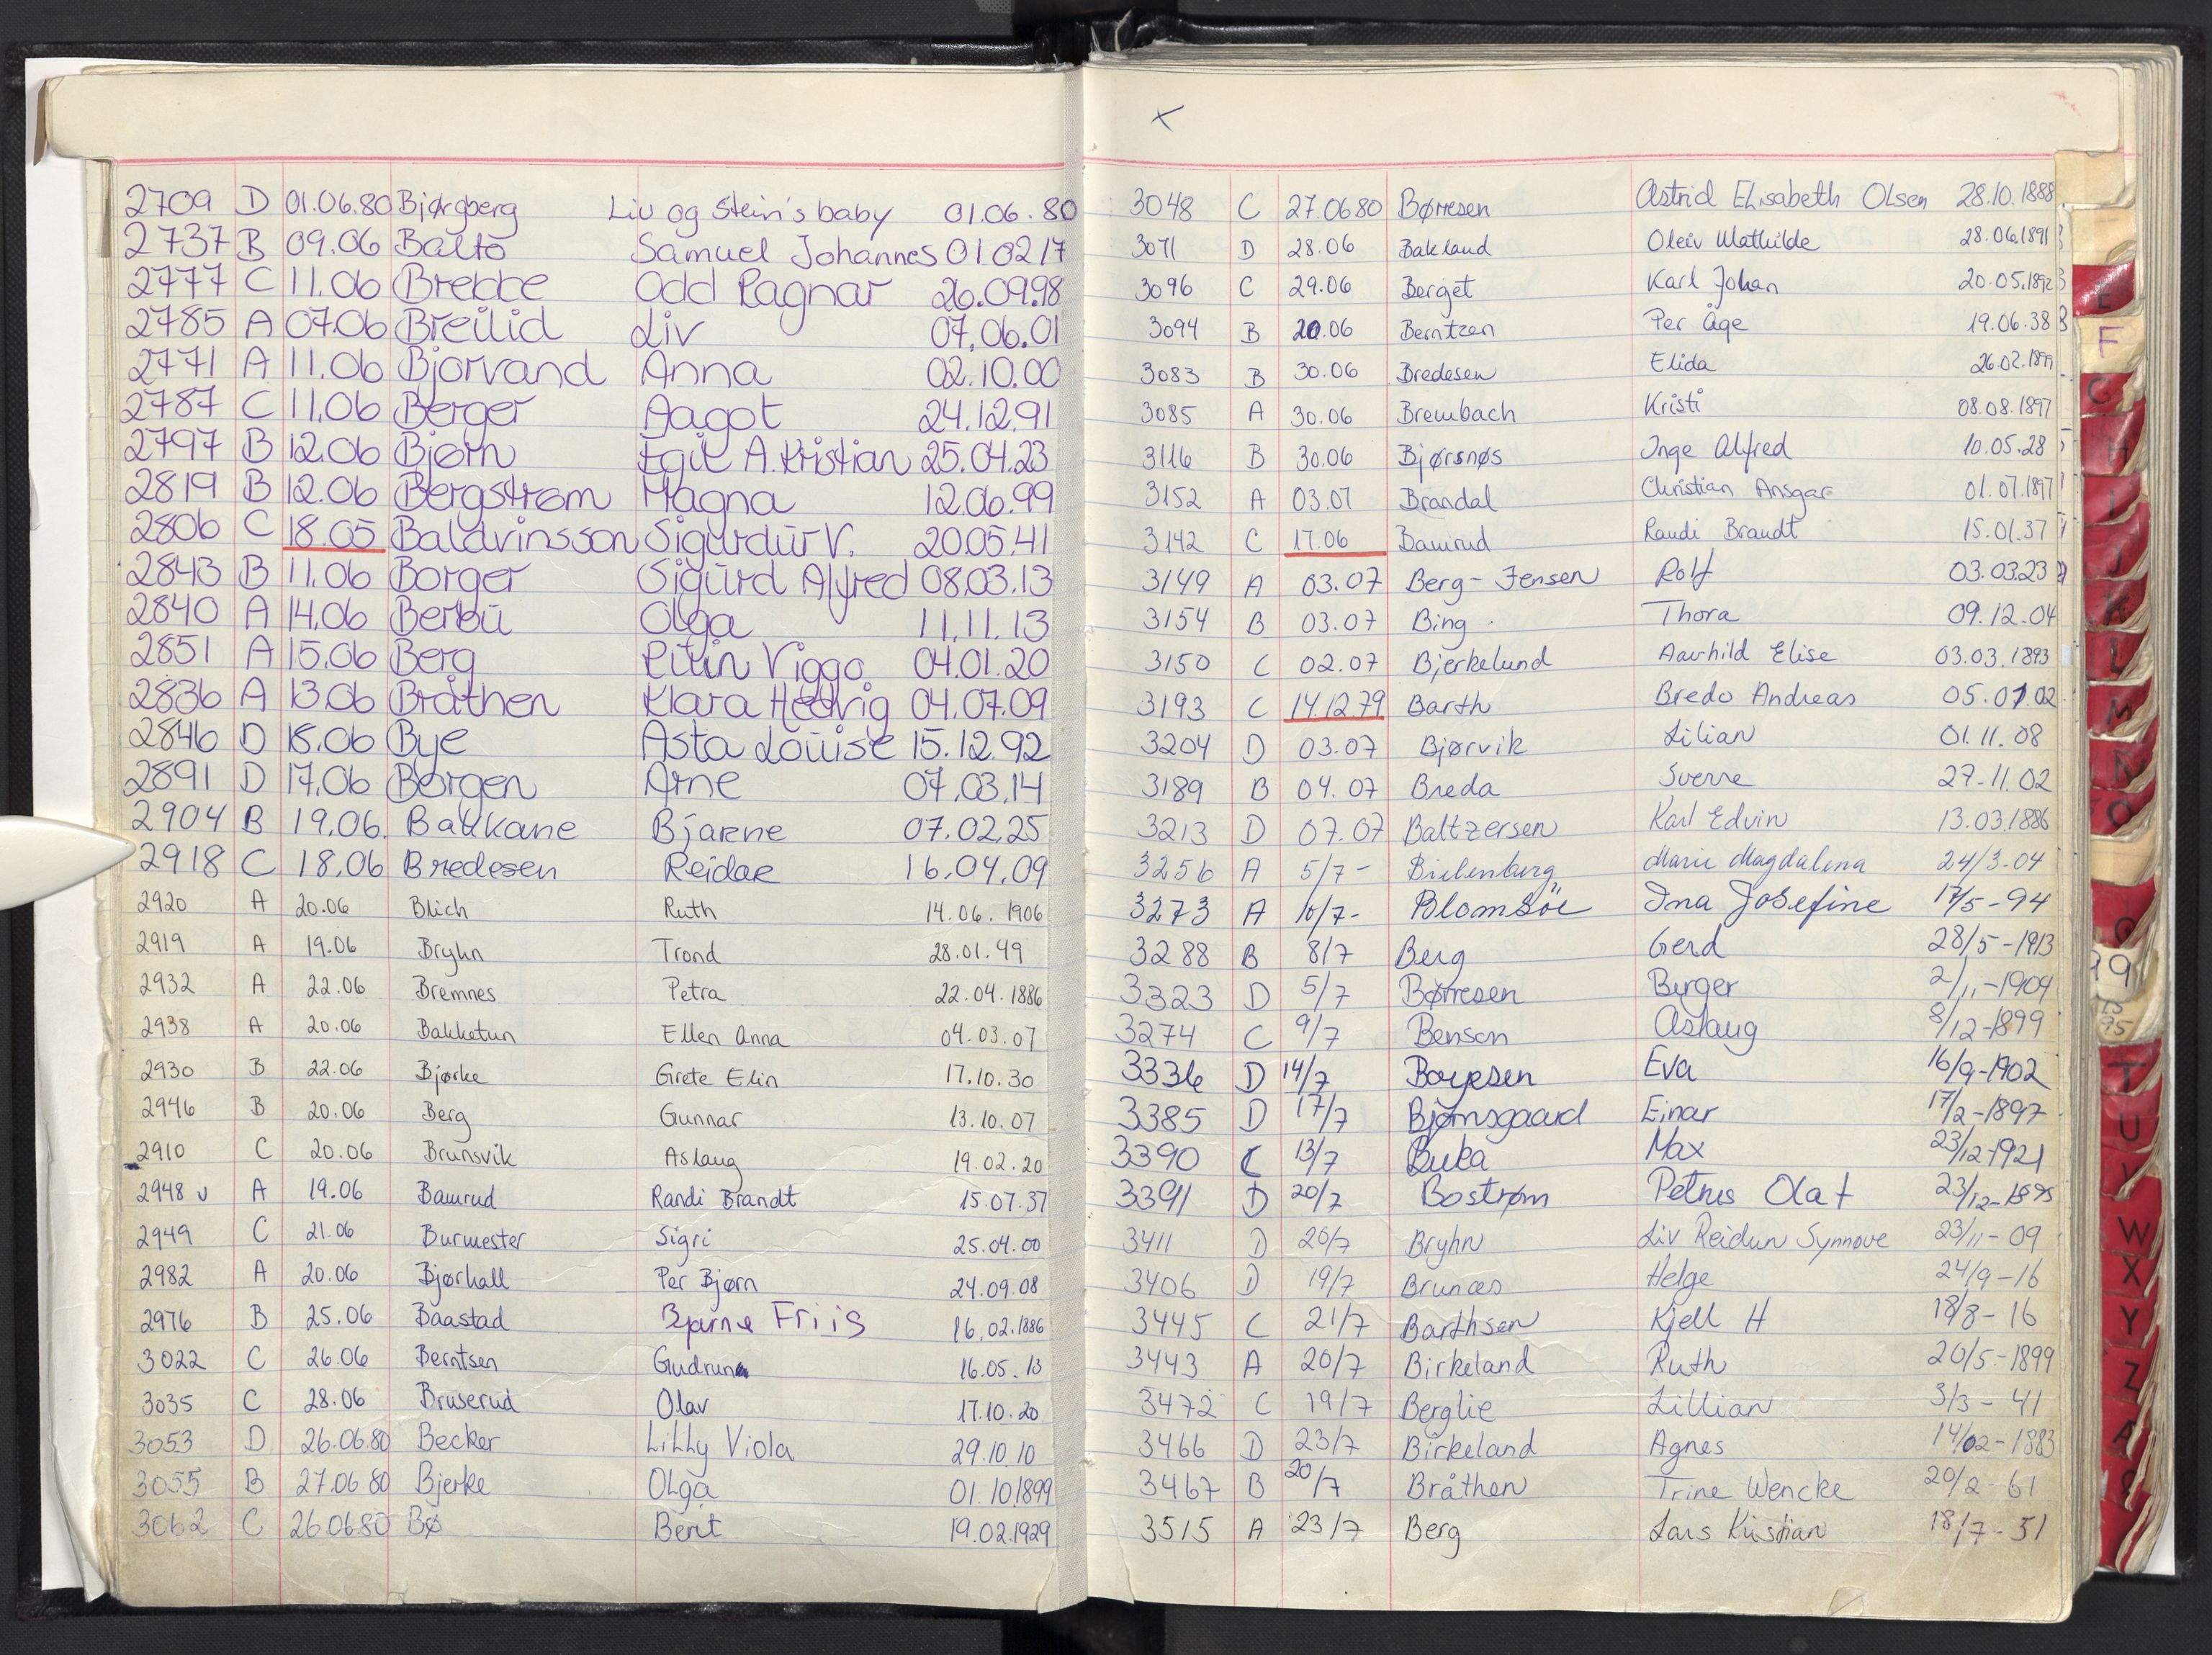 2709 D 01.06.80 Bjørgberg Liv og Stein's baby 01.06.80
2737 B 09.06 Balto Samuel Johannes 01.02.17
2777 C 11.06 Brekke Odd Ragnar 26.09.98
2785 A 07.06 Breilid Liv 07.06.01
2771 A 11.06 Bjorvand Anna 02.10.00
2787 C 11.06 Berger Aagot 24.12.91
2797 B 12.06 Bjørn Egil A. Kristian 25.04.23
2819 B 12.06 Bergstrøm Magna 12.06.99
2806 C 18.05 Baldvinsson Sigurdur V. 20.05.41
2843 B 11.06 Borger Sigurd Alfred 08.03.13
2840 A 14.06 Berbu Olga 11.11.13
2851 A 15.06 Berg Viggo 04.01.20
2836 A 13.06 Bråthen Klara Hedvig 04.07.09
2846 D 18.06 Bye Asta Louise 15.12.92
2891 D 17.06 Borgen Arne 07.03.14
2904 B 19.06. Bakkane Bjarne 07.02.25
2918 C 18.06 Bredesen Reidar 16.04.09
2920 A 20.06 Blich Ruth 14.06.1906
2919 A 19.06 Bryhn Trond 28.01.49
2932 A 22.06 Bremnes Petra 22.04.1886
2938 A 20.06 Bakketun Ellen Anna 04.03.07
2930 B 22.06 Bjørke Grete Elin 17.10.30
2946 B 20.06 Berg Gunnar 13.10.07
2910 C 20.06 Brunsvik Aslaug 19.02.20
2948 A 19.06 Bamrud Randi Brandt 15.07.37
2949 C 21.06 Burmester Sigri 25.04.00
2982 A 20.06 Bjørhall Per Bjørn 24.09.08
2976 B 25.06 Baastad Bjarne Friis 16.02.1886
3022 C 26.06 Berntsen Gudrun 16.05.13
3035 C 28.06 Bruserud Olav 17.10.20
3053 D 26.06.80 Becker Lilly Viola 29.10.10
3055 B 27.06 80 Bjerke Olga 01.10.1899
3062 C 26.06.80 Bø Berit 19.02.1929
x
3048 C 27.06 80 Børresen Astrid Elisabeth Olsen 28.10.1888
3071 D 28.06 Bakland Oleiv Mathilde 28.06.1891
3096 C 29.06 Berget Karl Johan 20.05.1892
3094 B 20.06 Berntzen Per Åge 19.06.38
3083 B 30.06 Bredesen Elida 26.02.1899
3085 A 30.06 Brembach Kristi 08.08.1897
3116 B 30.06 Bjørsnøs Inge Alfred 10.05.28
3152 A 03.07 Brandal Christian Ansgar 01.07.1897
3142 C 17.06 Bamrud Randi Brandt 15.01.37
3149 A 03.07 Berg-Jensen Rolf 03.03.23
3154 B 03.07 Bing Thora 09.12.04
3150 C 02.07 Bjerkelund Elise 03.03.1893
3193 C 14.12.79 Barth Bredo Andreas 05.07.02
3204 D 03.07 Bjørvik Lilian 01.11.08
3189 B 04.07 Breda Sverre 27.11.02
3213 D 07.07 Baltzersen Karl Edvin 13.03.1886
3256 A 5/7- Bielenberg Marie Magdalena 24/3-04
3273 A 10/7- Ina Josefine 17/5-94
3288 B 8/7 Berg Gerd 28/5-1913
3323 D 5/7 Børresen Birger 2/11-1904
3274 C 9/7 Benson Aslaug 8/12-1899
3336 D 14/7 Eva 16/9-1902
3385 D 17/7 Bjørnsgaard Einar 17/2-1897
3390 C 13/7 Buka Max 23/12-1921
3391 D 20/7 Bostrøm Petrus Olaf 23/12-1895
3411 D 20/7 Bryhn Liv Reidun Synnøve 23/11-09
3406 D 19/7 Brunæs Helge 24/9-16
3445 C 21/7 Barthsen Kjell H 18/8-16
3443 A 20/7 Birkeland Ruth 20/5-1899
3472 C 19/7 Berglie Lillian 3/3-41
3466 D 23/7 Birkeland Agnes 14/02-1883
3467 B 20/7 Bråthen Trine Wencke 20/2-61
3515 A 23/7 Berg Lars Kristian 18/7-51
E
F
G
H
I
J
K
L
M
N
O
T
U
V
W
X
Y
Z